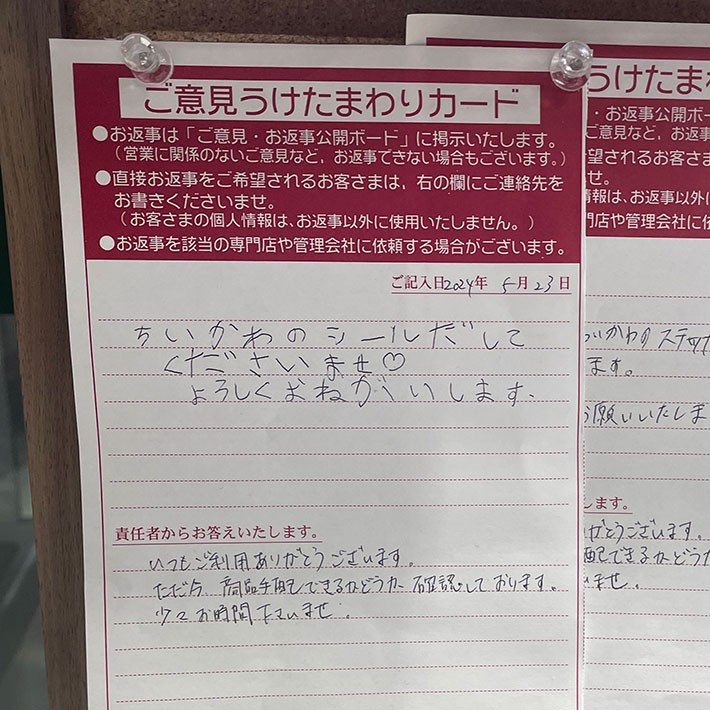 ご意見うけたまわりカード
●お返事は「ご意見・お返事公開ボード」に掲示いたします。
（営業に関係のないご意見など，お返事できない場合もございます。）
●直接お返事をご希望されるお客さまは，右の欄にご連絡先を
お書きくださいませ。
（お客さまの個人情報は、お返事以外に使用いたしません。）
●お返事を該当の専門店や管理会社に依頼する場合がございます。
ご記入日2024年 5月23日
ちいかわのシールだして
くださいませ♡
よろしくおねがいします.
責任者からお答えいたします。
いつもご利用ありがとうございます。
ただ今、商品手配できるかどうか確認しております。
少々お時間下さいませ。
うけたま
・お返事公開ボー
ご意見など，お返事
望されるお客さま
せ。
情報は、お返事以外に
門店や管理会社に依
いかわの ステッカ
ます。
お願いいたしま
します。
がとうございます。
配できるかどうか
いませ。